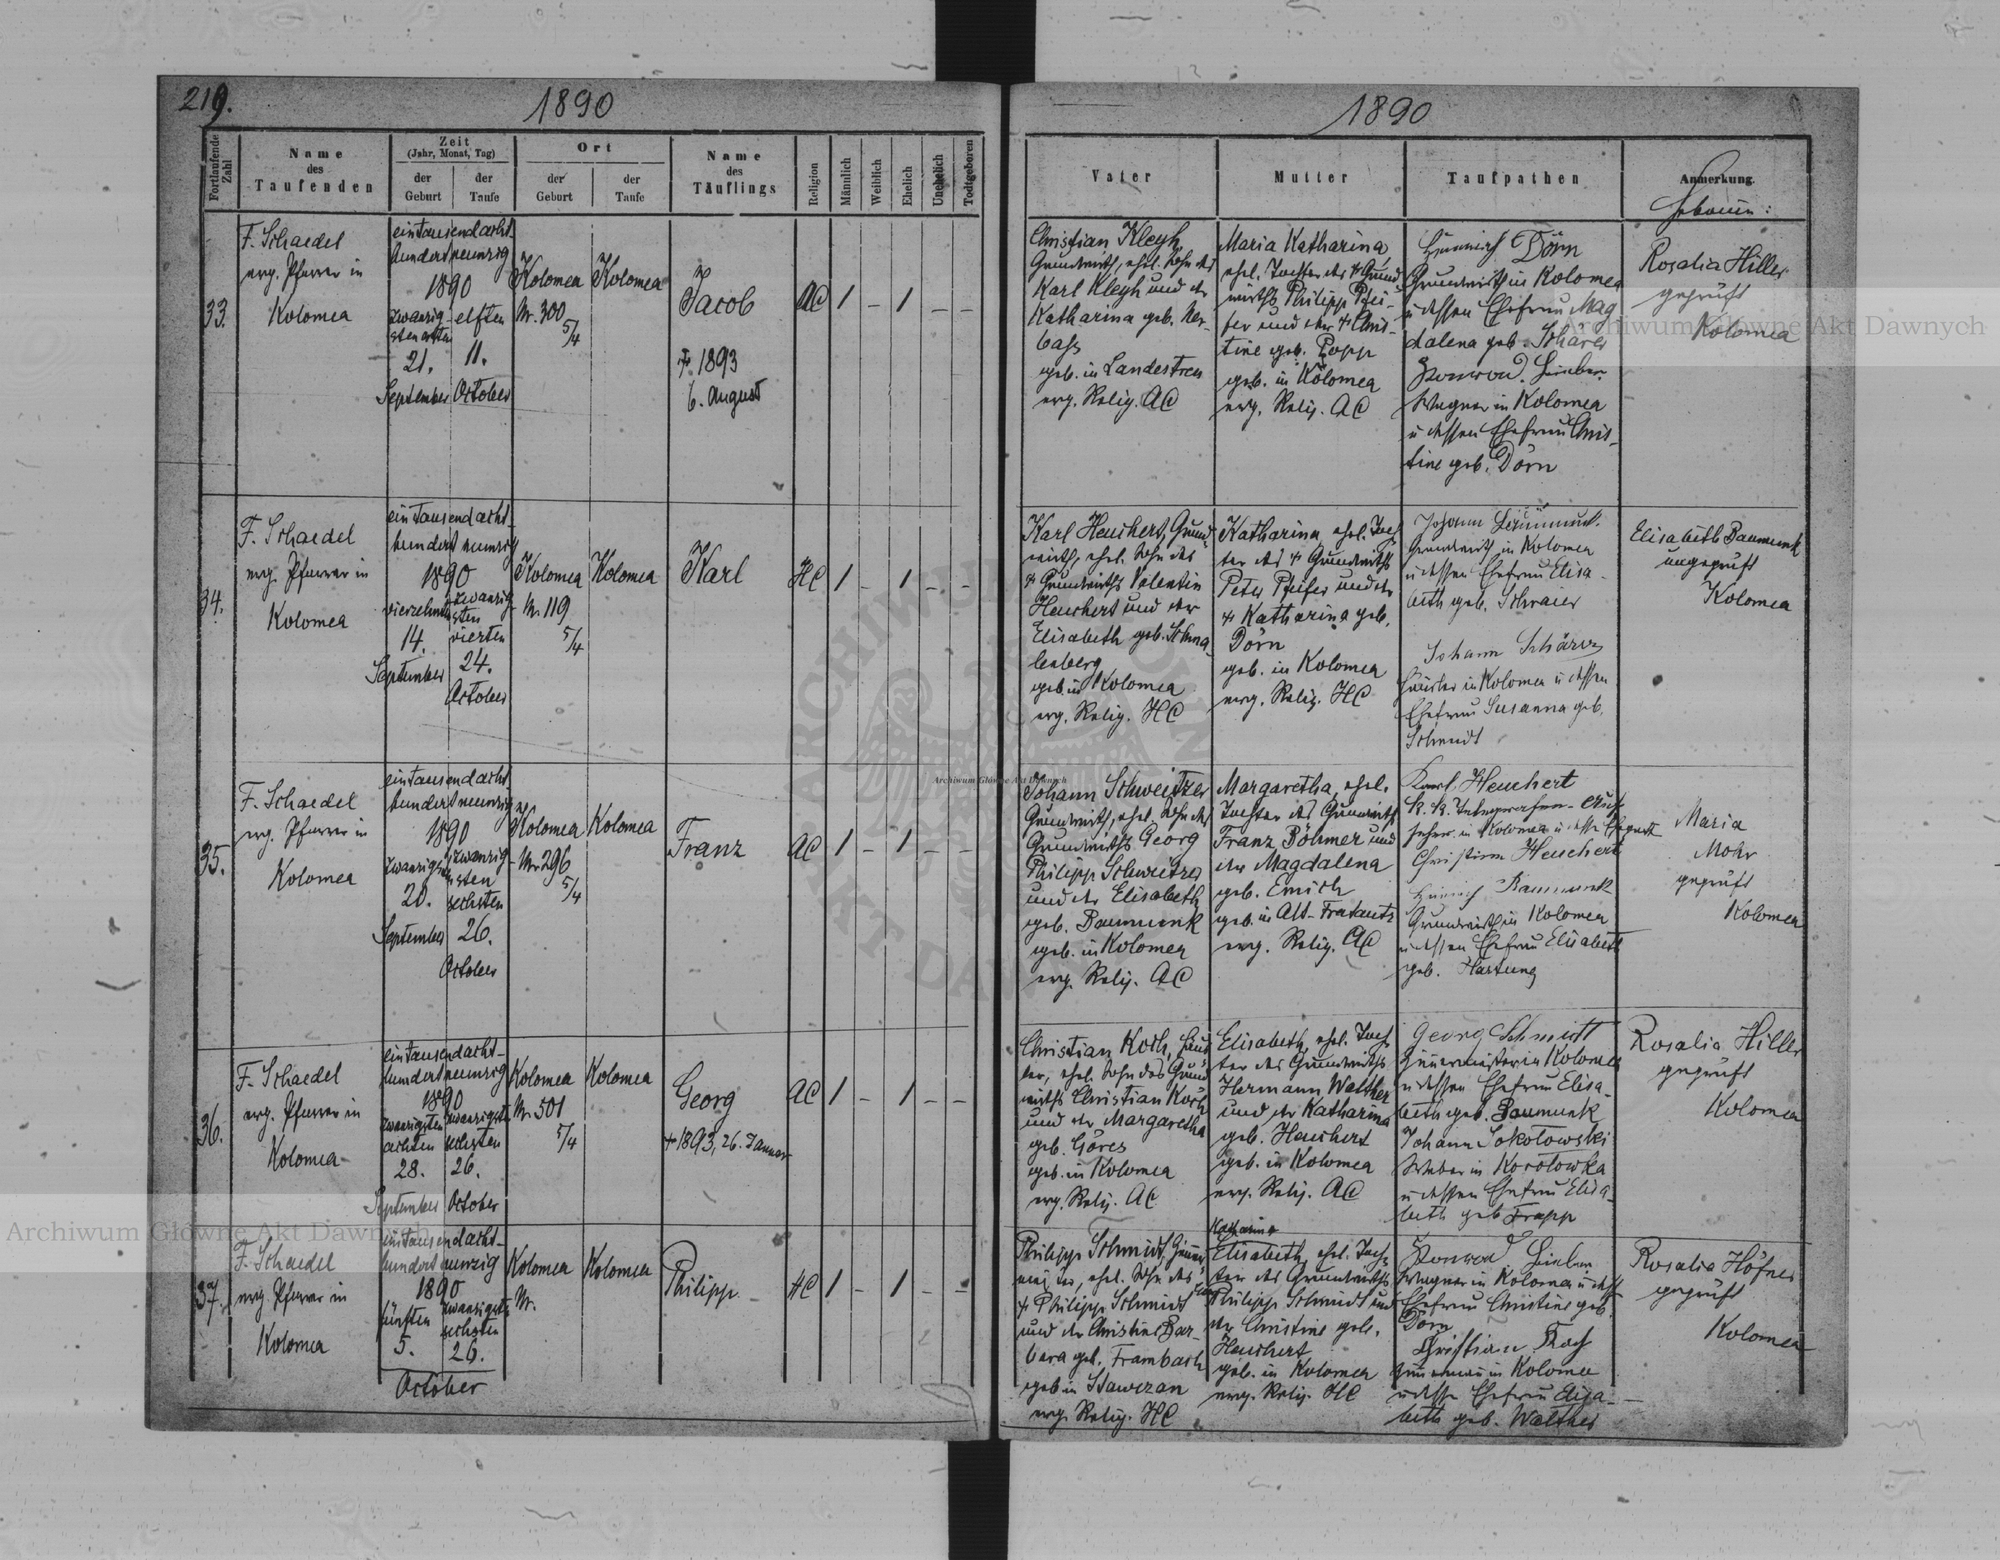 219.
1890
1890
Fortlaufende Zahl
Name
des
Taufenden
Zeit
(Jahr, Monat, Tag)
der
Geburt
der
Taufe
Ort
der
Geburt
der
Taufe
Name
des
Täuflings
Religion
Männlich
Weiblich
Ehelich
Unehelich
Todtgeboren
Vater
Mutter
Taufpathen
Anmerkung.
33.
F. Schaedel
evg. Pfarrer in
Kolomea
eintausendacht
hundertneunzig
1890
zwanzig-
sten ersten
21.
September
elften
11.
October
Kolomea
Nr. 300
5/4
Kolomea
Jacob
† 1893
6. August
AC
1
–
1
–
–
Christian Kleyh
Grundwirth, ehel. Sohn des
Karl Kleyh und der
Katharina geb. Ner-
bass
geb. in Landestreu
evg. Relig. AC
Maria Katharina,
ehel. Tochter des † Grund-
wirths Philipp Pfei-
fer und der † Chris-
tine geb. Popp
geb. in Kolomea
evg. Relig. AC
Heinrich Dörn
Grundwirth in Kolomea
u dessen Ehefrau Mag
dalena geb. Scharer
Konrad
Wagner in Kolomea
u dessen Ehefrau Chris-
tine geb. Dörn
Rosalia Hiller
geprüft
Kolomea
34.
F. Schaedel
evg. Pfarrer in
Kolomea
eintausendacht-
hundert neunzig
1890
vierzehnten
14.
September
zwanzig-
sten
vierten
24.
October
Kolomea
Nr. 119
5/4
Kolomea
Karl
HC
1
–
1
–
–
Karl Heuchert, Grund-
wirth, ehel. Sohn des
† Grundwirths Valentin
Heuchert und der
Elisabeth geb. Schna-
lenberg
geb. in Kolomea
evg. Relig. HC
Katharina, ehel. Toch
ter des † Grundwirths
Peter Pfeifer und der
† Katharina geb.
Dörn
geb. in Kolomea
evg. Relig. HC
Johann Baumunk
Grundwirth in Kolomea
u dessen Ehefrau Elisa-
beth geb. Schraier
Johann Schärer
Häusler in Kolomea u dessen
Ehefrau Susanna geb.
Schmidt
Elisabeth Baumunk
ungeprüft
Kolomea
35.
F. Schaedel
evg. Pfarrer in
Kolomea
eintausendacht
hundertneunzig
1890
zwanzigsten
20.
September
zwanzig-
sten
sechsten
26.
October
Kolomea
Nr. 296
5/4
Kolomea
Franz
AC
1
–
1
–
–
Johann Schweitzer
Grundwirth, ehel. Sohn des
Grundwirths Georg
Philipp Schweitzer
und der Elisabeth
geb. Baumunk
geb. in Kolomea
evg. Relig. AC
Margaretha, ehel.
Tochter des Grundwirths
Franz Böhmer und
der Magdalena
geb. Emich
geb. in Alt-Fratautz
evg. Relig. AC
Karl Heuchert
k. k. Telegrafen-Auf-
seher in Kolomea u dessen Ehegattin
Christina Heuchert
Heinrich Baumunk
Grundwirth in Kolomea
u dessen Ehefrau Elisabeth
geb. Hartung
Maria
Mohr
geprüft
Kolomea
36.
F. Schaedel
evg. Pfarrer in
Kolomea
eintausendacht-
hundertneunzig
1890
zwanzigsten
achten
28.
September
zwanzigsten
sechsten
26.
October
Kolomea
Nr. 501
5/4
Kolomea
Georg
† 1893, 26. Januar
AC
1
–
1
–
–
Christian Koch, Häus
ler, ehel. Sohn des Grund
wirths Christian Koch
und der Margaretha
geb. Göres
geb. in Kolomea
evg. Relig. AC
Elisabeth, ehel. Toch
ter des Grundwirths
Hermann Walther
und der Katharina
geb. Heuchert
geb. in Kolomea
evg. Relig. AC
Georg Schmidt
Zimmermeister in Kolomea
u dessen Ehefrau Elisa-
beth geb. Baumunk
Johann Sokołowski
Weber in Korolowka
u dessen Ehefrau Elisa-
beth geb. Trapp
Rosalia Hiller
geprüft
Kolomea
37.
F. Schaedel
evg. Pfarrer in
Kolomea
eintausendacht-
hundert neunzig
1890
fünften
5.
zwanzigsten
sechsten
26.
October
Kolomea
Nr.
Kolomea
Philipp
HC
1
–
1
–
–
Philipp Schmidt,
ehel. Sohn des
† Philipp Schmidt
und der Christine Bar-
bara geb. Frambach
geb. in Sawczan
evg. Relig. HC
Katharina
Elisabeth, ehel. Toch-
ter des Grundwirths
Philipp Schmidt und
der Christine geb.
Heuchert
geb. in Kolomea
evg. Relig. HC
Konrad
Wagner in Kolomea u dessen
Ehefrau Christine geb.
Dörn
Christian Koch
Zimmermann in Kolomea
u dessen Ehefrau Elisa-
beth geb. Walther
Rosalia Höfner
geprüft
Kolomea
Archiwum Główne Akt Dawnych
Archiwum Główne Akt Dawnych
Archiwum Główne Akt Dawnych